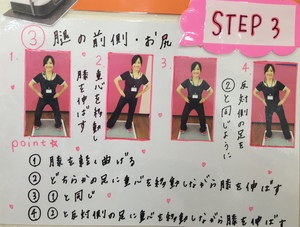 STEP 3
③ 腿の前側・お尻
1.
膝を伸ばす
2.
重心を移動し
3.
4.
反対側の足も
②と同じように
point☆
① 膝を軽く曲げる
② どちらかの足に重心を移動しながら膝を伸ばす
③ ①と同じ
④ ②と反対側の足に重心を移動しながら膝を伸ばす